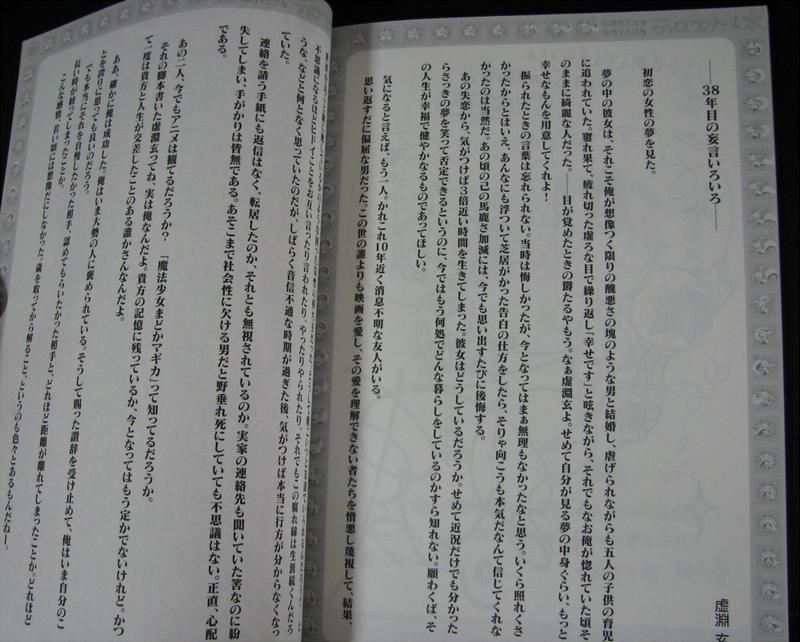 ――38年目の妄言いろいろ――
虚淵 玄
初恋の女性の夢を見た。
夢の中の彼女は、それこそ俺が想像つく限りの醜悪さの塊のような男と結婚し、虐げられながらも五人の子供の育児
に追われていた。寝れ果て、疲れ切った虚ろな目で繰り返し「幸せです」と呟きながら、それでもなお俺が惚れていた頃そ
のままに綺麗な人だった。――目が覚めたときの鬱たるやもう。なぁ虚淵玄よ。せめて自分が見る夢の中身ぐらい、もっと
幸せなもんを用意してくれよ！
振られたときの言葉は忘れられない。当時は悔しかったが、今となってはまぁ無理もなかったなと思う。いくら照れくさ
かったからとはいえ、あんなにも浮ついて芝居がかった告白の仕方をしたら、そりゃ向こうも本気だなんて信じてくれな
かったのは当然だ。あの頃の己の馬鹿さ加減には、今でも思い出すたびに後悔する。
あの失恋から、気がつけば3倍近い時間を生きてしまった。彼女はどうしているだろうか。せめて近況だけでも分かった
らさっきの夢を笑って否定できるというのに、今ではもう何処でどんな暮らしをしているのかすら知れない。願わくば、そ
の人生が幸福で健やかなるものであってほしい。
気になると言えば、もう一人。かれこれ10年近く消息不明な友人がいる。
思い返すだに偏屈な男だった。この世の誰よりも映画を愛し、その愛を理解できない者たちを憎悪し蔑視して、結果、
不思議になるほどヒドイことをお互い言ったり言われたり、やったりやられたり、それでもこの腐れ縁は生涯続くんだろ
うな、などと何となく思っていたのだが、しばらく音信不通な時期が過ぎた後、気がつけば本当に行方が分からなくなっ
ていた。
連絡を請う手紙にも返信はなく、転居したのか、それとも無視されているのか。実家の連絡先も聞いていた筈なのに紛
失してしまい、手がかりは皆無である。あそこまで社会性に欠ける男だと野垂れ死にしていても不思議はない。正直、心配
である。
あの二人、今でもアニメは観てるだろうか？ 「魔法少女まどかマギカ」って知ってるだろうか。
それの脚本書いた虚淵玄ってね、実は俺なんだよ。貴方の記憶に残っているか、今となってはもう定かでないけれど。かつ
て一度は貴方と人生が交差したことのある誰かさんなんだよ。
ああ、確かに俺は成功した。俺はいま大勢の人に褒められている。そうして賜った讃辞を受け止めて、俺はいま自分のこ
とを誇りに思っても良いのだろう。
でも本当にそれを自慢したかった相手、認めてもらいたかった相手と、どれほど距離が離れてしまったことか。どれほど
長い時が経ってしまったことか。
こんな感情、若い頃には想像だにしなかった。歳を取ってから解ること、というのも色々とあるもんだねー。